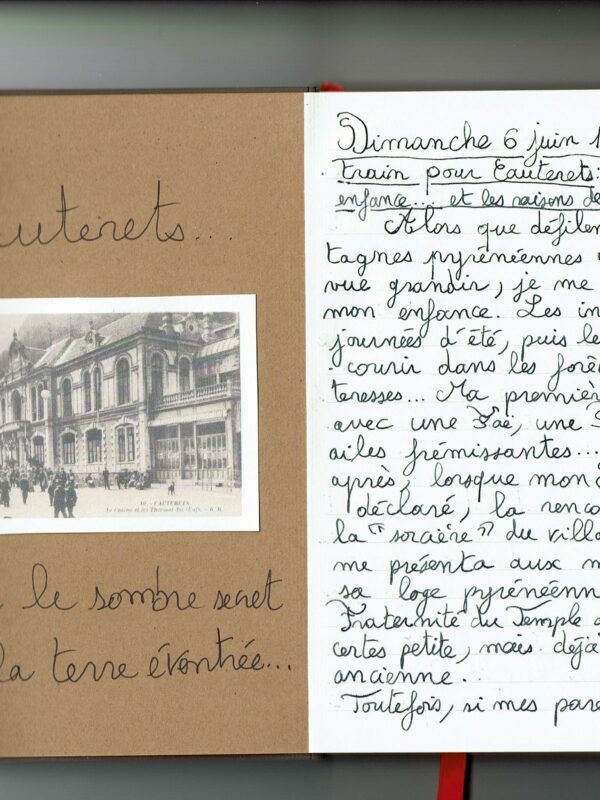 auterets...
10. - CAUTERETS
Le Casino et les Thermes des Œufs. - B. R.
le sombre secret
la terre éventrée...
Dimanche 6 juin 1
train pour Cauterets:
enfance... et les raisons de
Alors que défilen
tagnes pyrénéennes
vue grandir, je me
mon enfance. Les in
journées d'été, puis le
courir dans les forê
teresses... Ma premièr
avec une Faë, une
ailes frémissantes...
après, lorsque mon
déclaré, la renco
la "sorcière" du villa
me présenta aux m
sa loge pyrénéenn
Fraternité du Temple d
certes petite, mais déjà
ancienne.
Toutefois, si mes pare